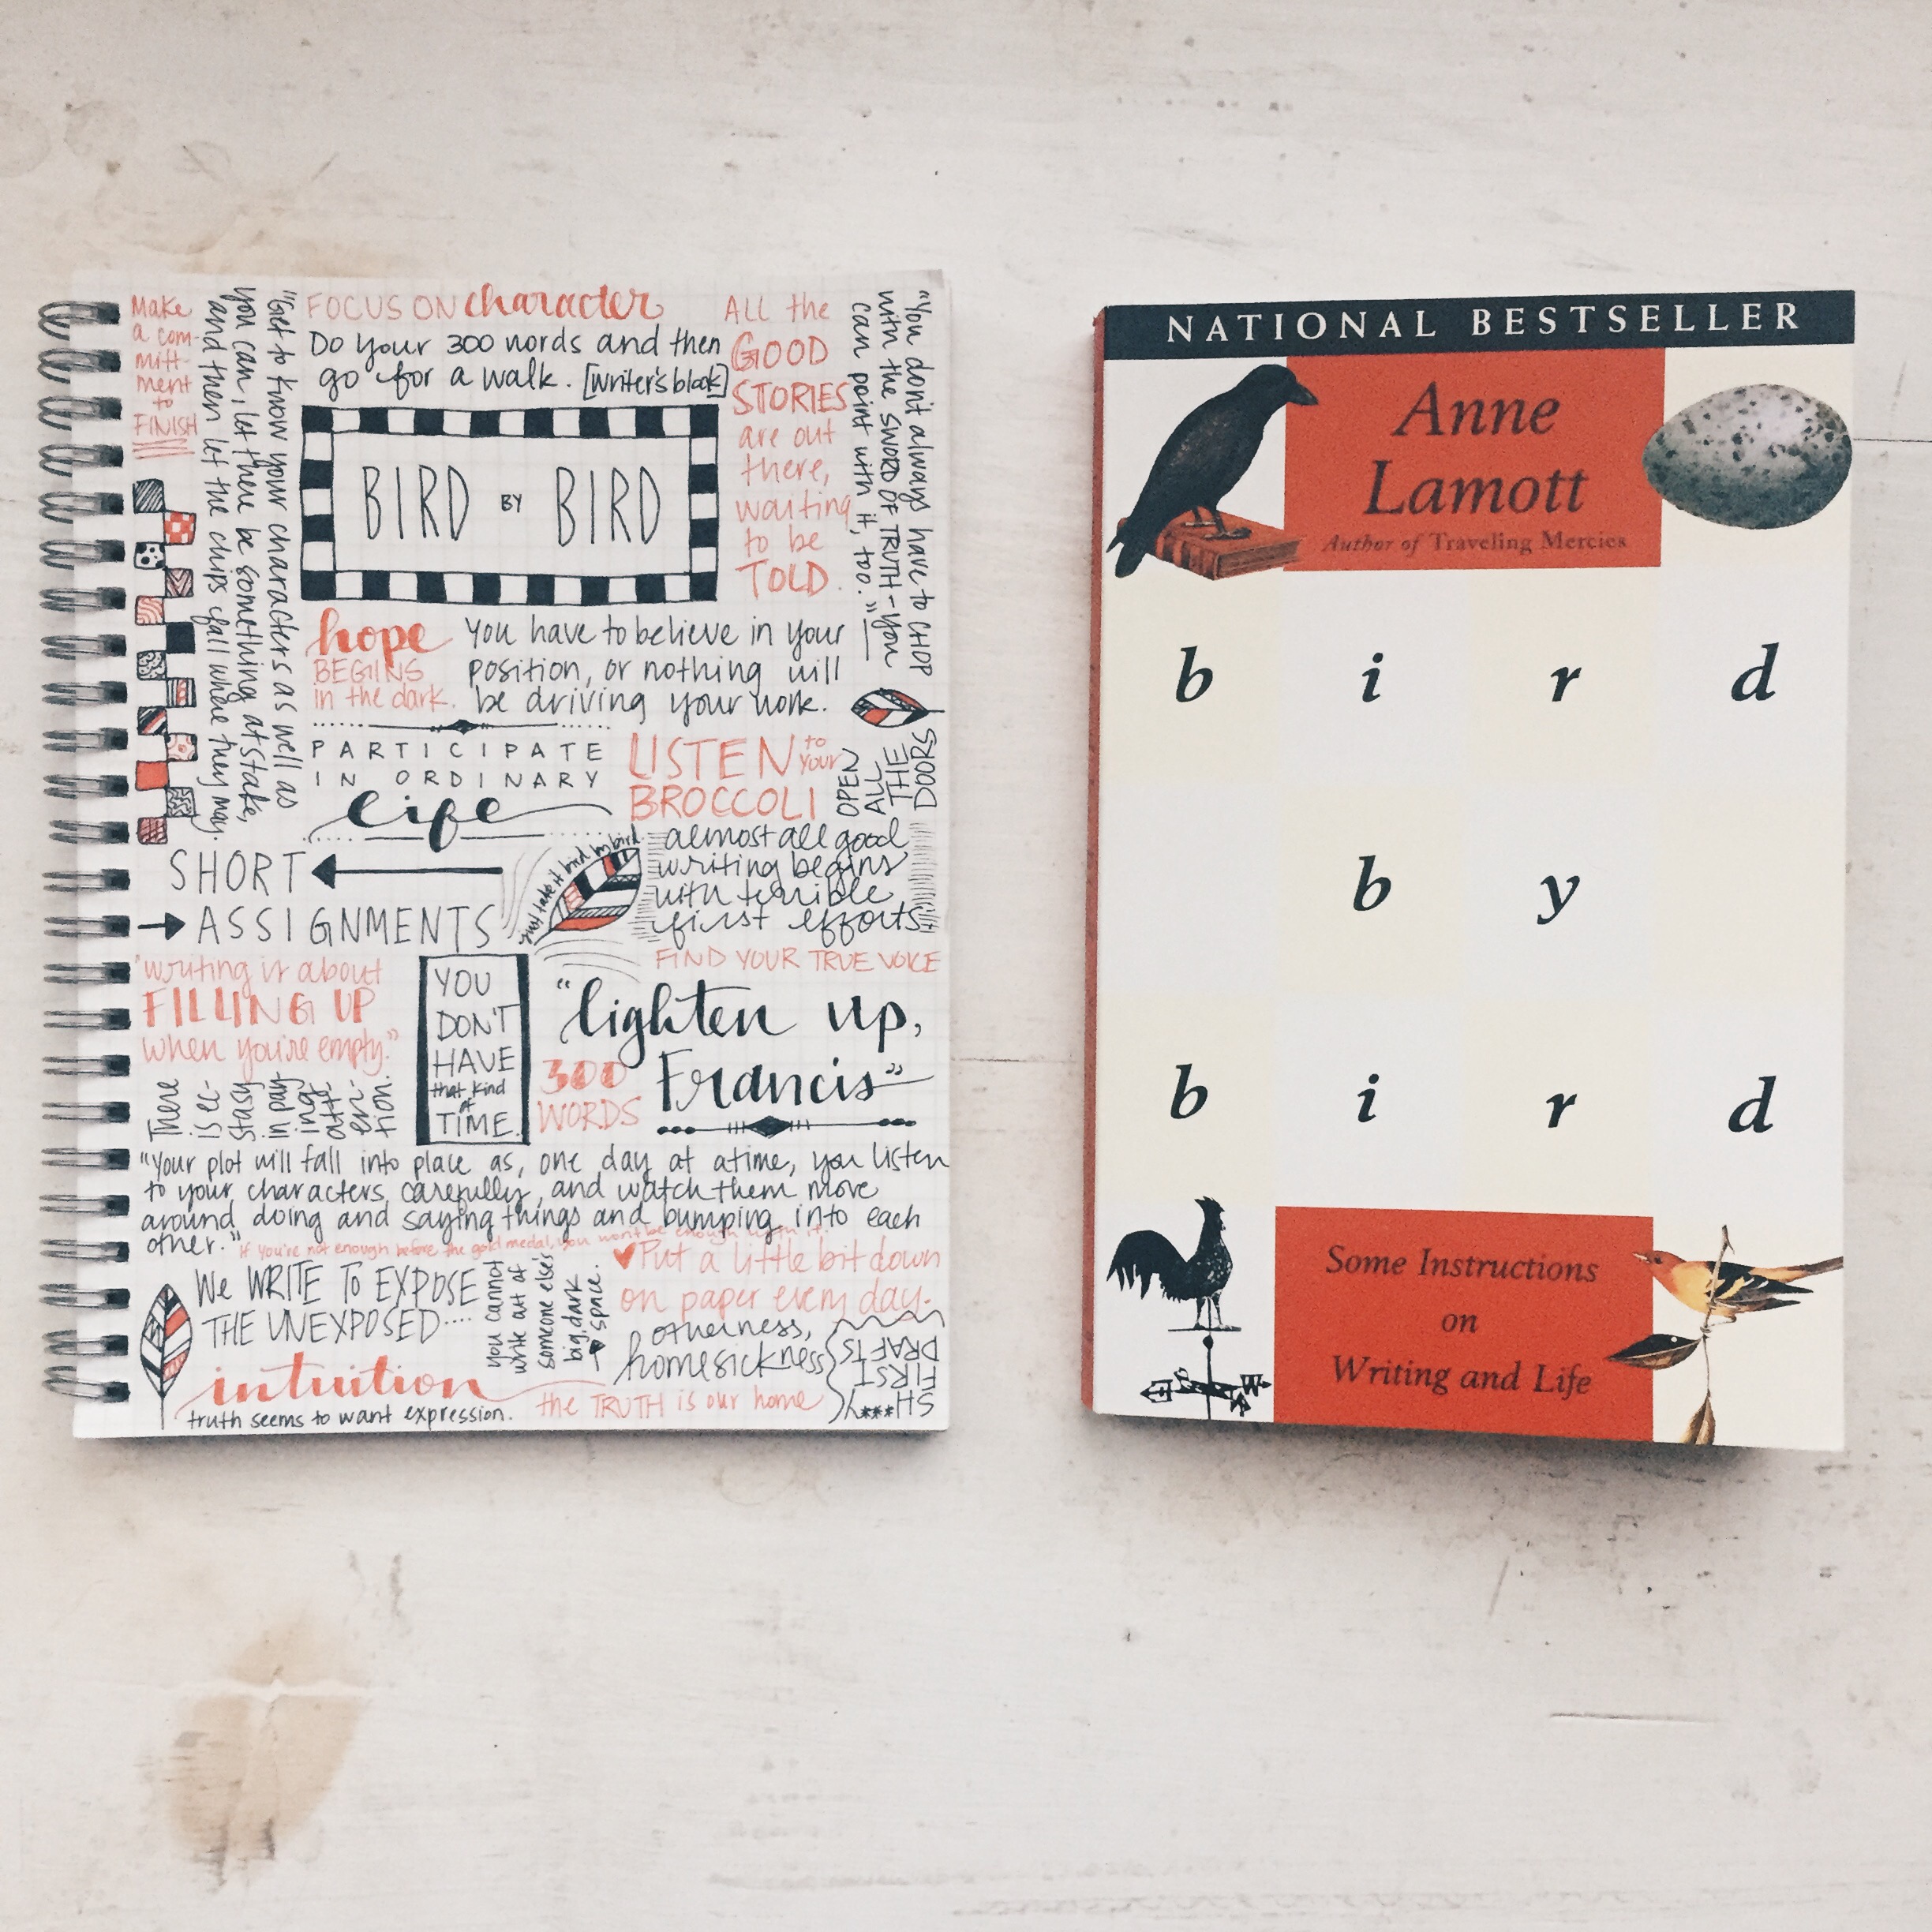 Make
a com-
mitt-
ment
to
FINISH
"Get to know your characters as well as
you can, let there be something at stake,
and then let the chips fall where they may.
FOCUS ON character
Do your 300 words and then
go for a walk. [writer's block]
BIRD BY BIRD
ALL the
GOOD
STORIES
are out
there,
waiting
to be
TOLD.
"You don't always have to CHOP
with the SWORD OF TRUTH - you
can point with it, too."
hope
BEGINS
in the dark.
You have to believe in your
position, or nothing will
be driving your work.
PARTICIPATE
IN ORDINARY
life
LISTEN to
your
BROCCOLI
OPEN
ALL
THE
DOORS
SHORT
ASSIGNMENTS
just take it bird by bird.
almost all good
writing begins
with terrible
first efforts
FIND YOUR TRUE VOICE
"writing is about
FILLING UP
when you're empty."
There
is ec-
stasy
in pay-
ing
att-
en-
tion.
YOU
DON'T
HAVE
that kind
of
TIME.
300
WORDS
"lighten up,
Francis"
"Your plot will fall into place as, one day at a time, you listen
to your characters carefully, and watch them move
around doing and saying things and bumping into each
other."
If you're not enough before the gold medal, you won't be enough with it.
We WRITE TO EXPOSE
THE UNEXPOSED....
you cannot
write out of
someone else's
big, dark
space.
Put a little bit down
on paper every day.
otherness,
homesickness
SH***Y
FIRST
DRAFTS
intuition
truth seems to want expression.
the TRUTH is our home
NATIONAL BESTSELLER
Anne
Lamott
Author of Traveling Mercies
b i r d
b y
b i r d
Some Instructions
on
Writing and Life
W